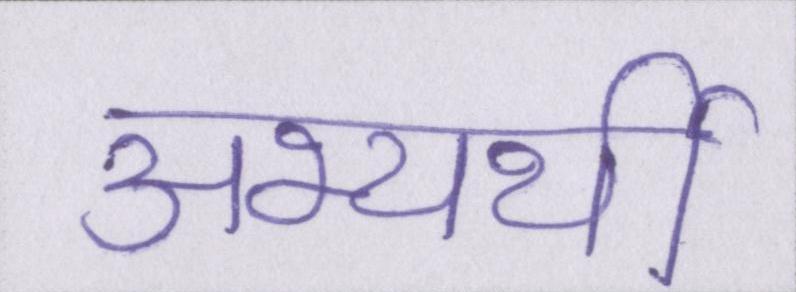 अभ्यर्थी